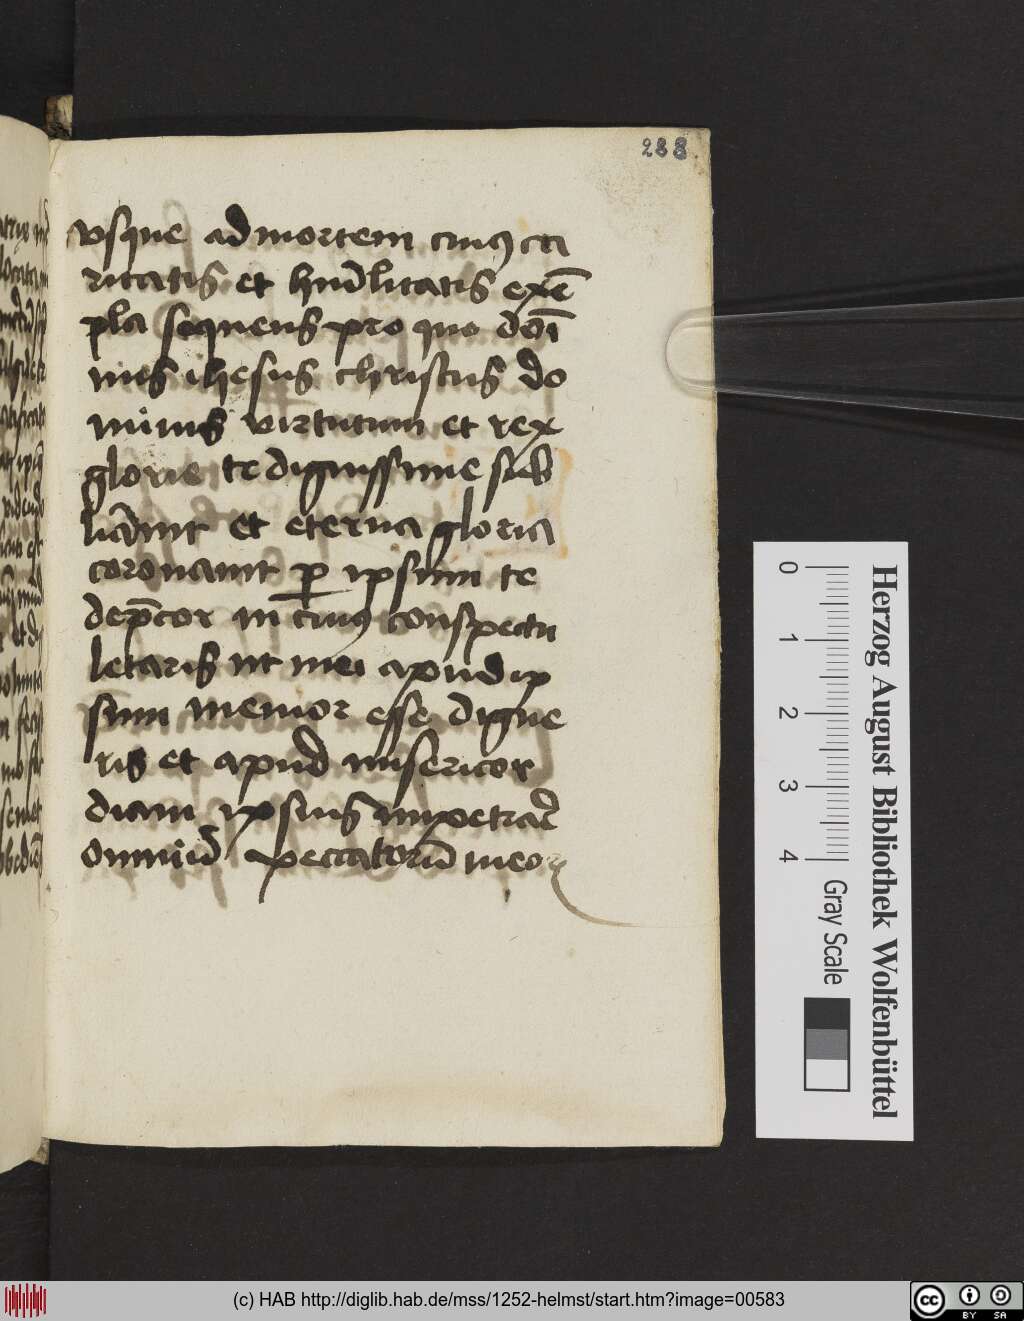 288
vsque ad mortem cuiꝯ ca
ritatis et hūilitatis exē
pla sequens pro quo doī
nus ihesus christus do
minus virtutum et rex
glorie te dignissime sub
liāuit et eterna gloria
coronauit p̲ ipsum te
dep̄cor in cuiꝯ conspectu
letaris ut mei apud ip
sum memor esse digne
ris et apud misericor
diam ipsius impetrar̄
omniū peccatorū meoꝝ
0
1
2
3
4
Gray Scale
Herzog August Bibliothek Wolfenbüttel
(c) HAB http://diglib.hab.de/mss/1252-helmst/start.htm?image=00583
cc BY SA